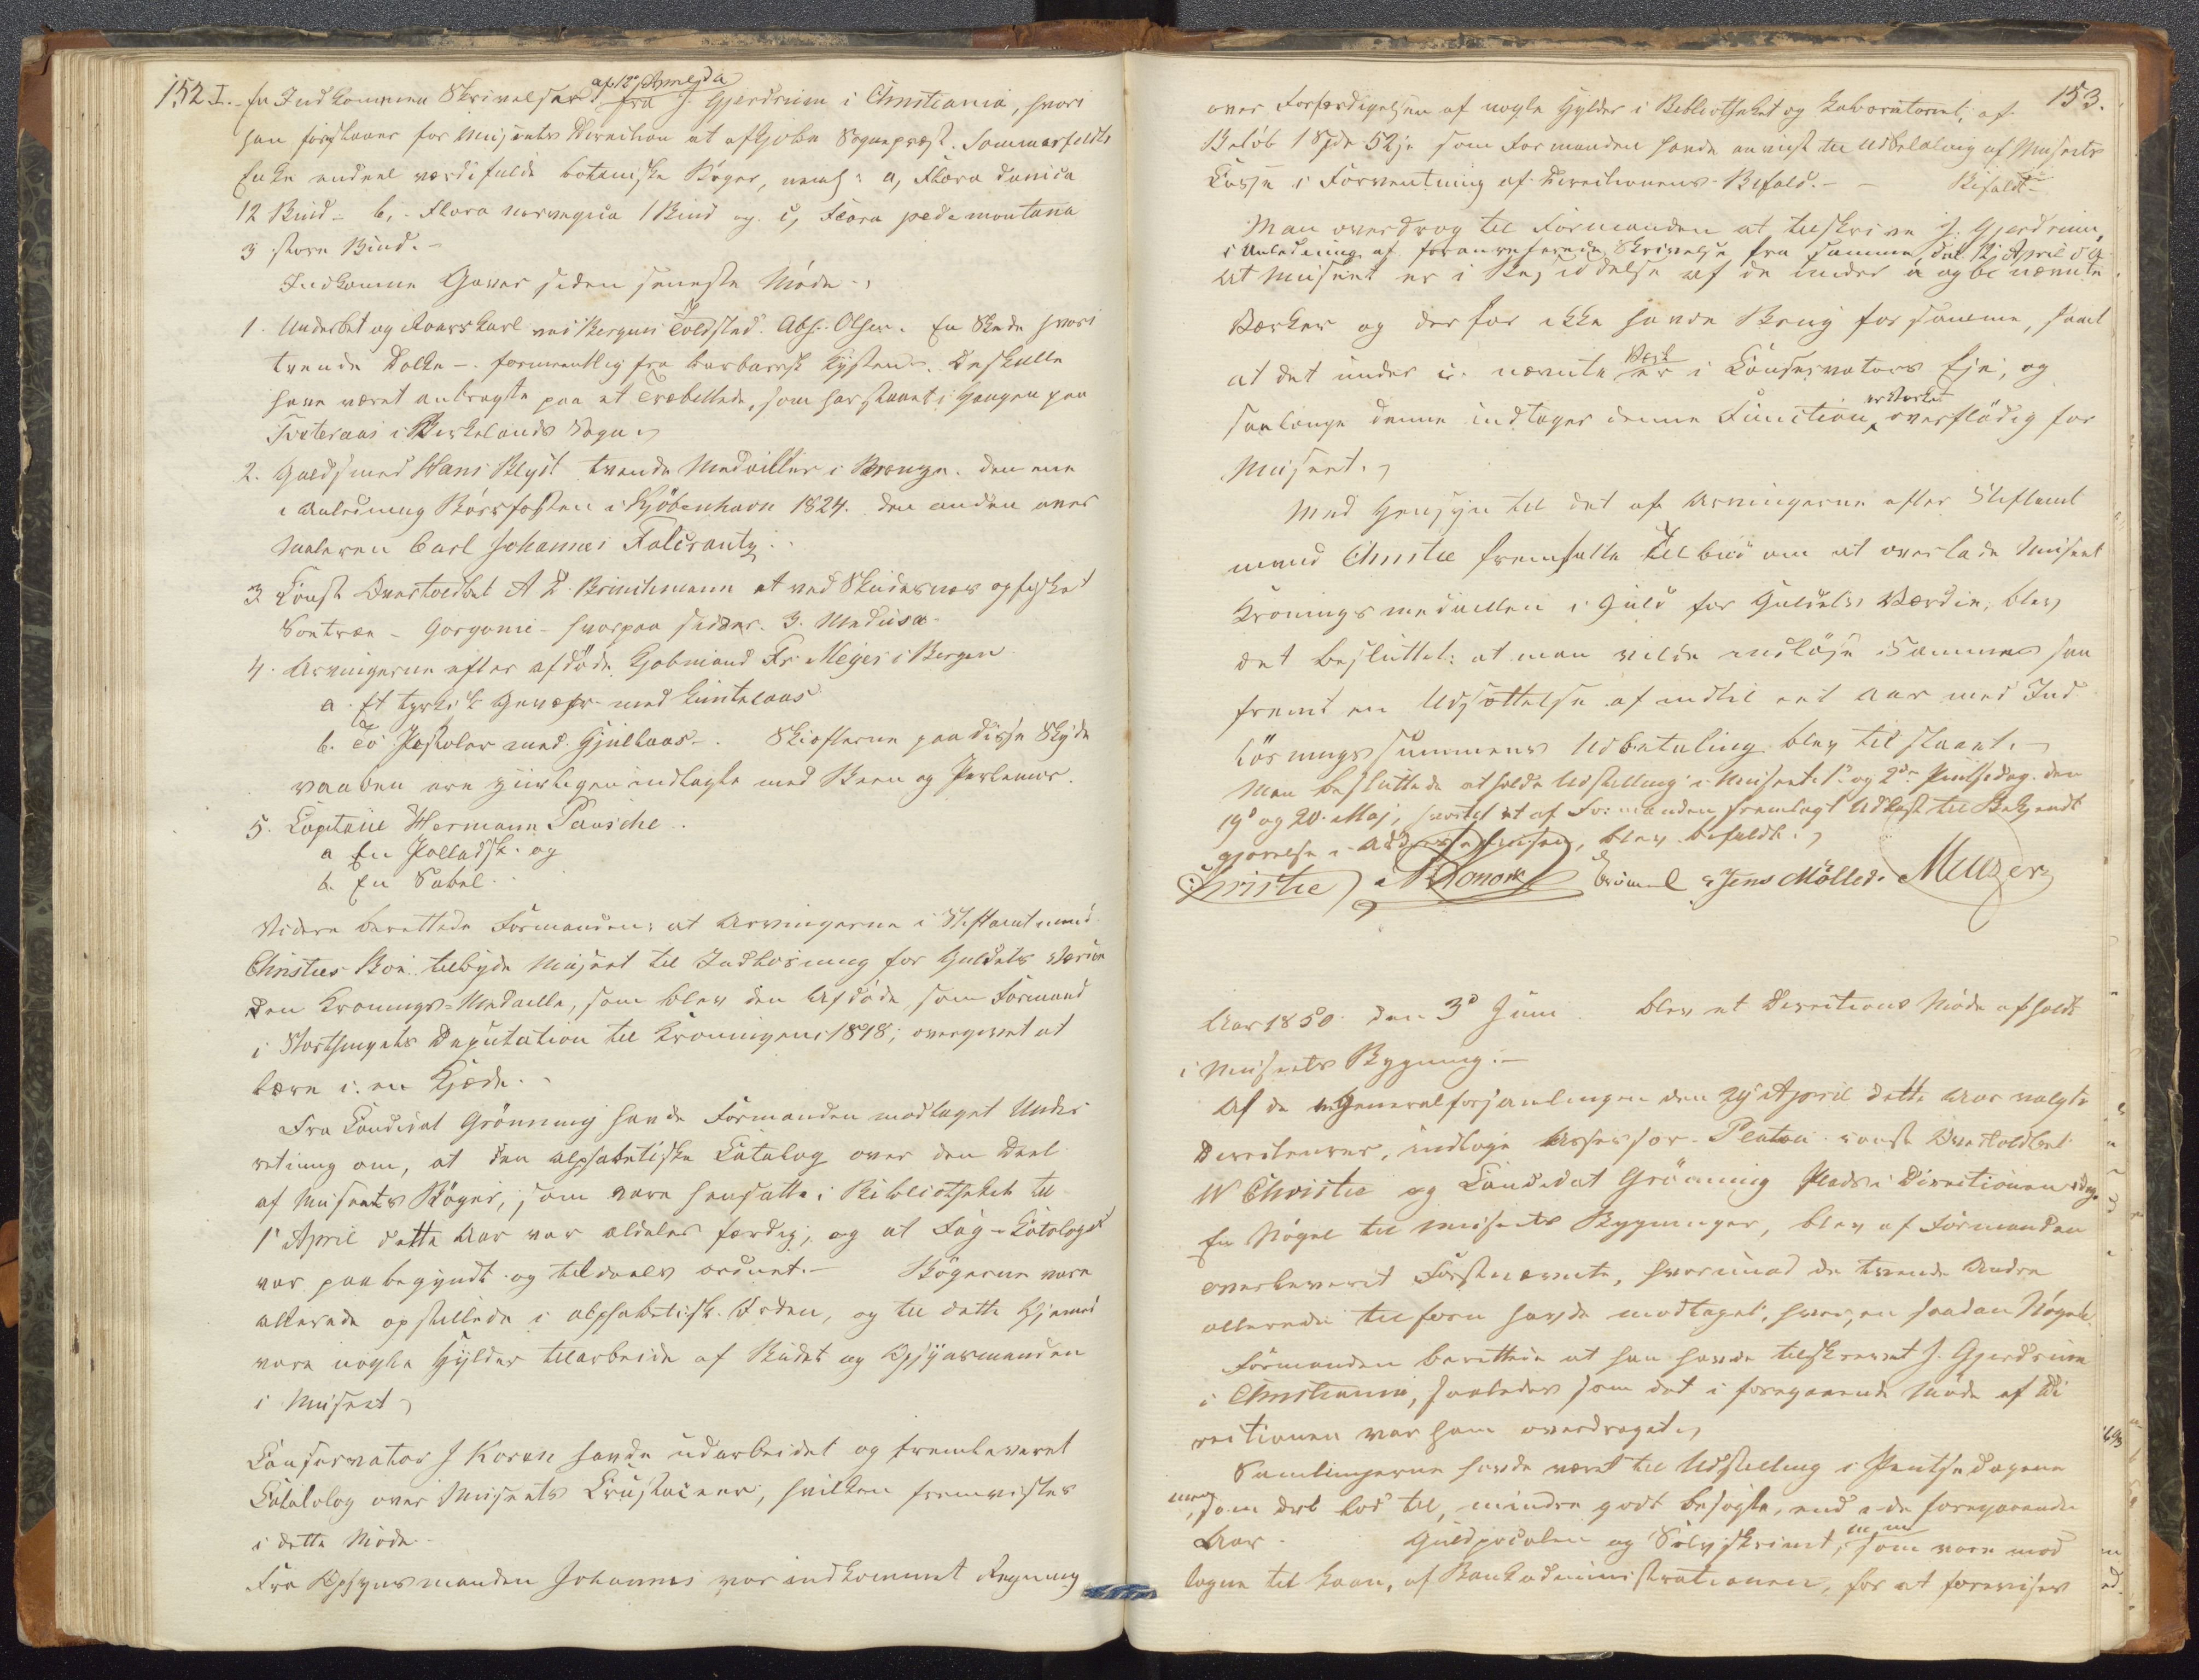 152 I. En Indkommen Skrivelse af 12 April d.a. fra J. Gjerdrum i Christiania, hvori
han foreslaaer for Museets Direction at afkjøbe Sognepræst Sommerfeldts
Enke endeel værdifulde botaniske Bøger, neml: a, Flora danica
12 Bind - b, - Flora norvegica 1 Bind og c, Flora pedemontana
3 store Bind. -
Indkomne Gaver siden seneste Møde.
1. Underbet og Roerskarl ved Bergens Toldsted. Abs: Olsen. En
trende Dolke - formeentlig fra barbaresk Kysten. De skulle
have været anbragte paa et Træbillede, som har staaet i Haugen paa
i Birkelands Sogn.
2. Guldsmed Hans Blyst trende Medailler i Bronze. den ene
i Anledning i Kjöbenhavn 1824. den anden over
Maleren Carl Johannes Falcrantz.
3. Const Overtoldbet A L Brinchmann et ved Skudesnæs opfisket
Søetræe - Gorgonie - hvorpaa sidder 3. Medusæ -
4. Arvingerne efter afdøde Kjøbmand Fr. Meyer i Bergen
a. Et tyrkisk Gevær med Luntelaas
b. To Pistoler med Hjullaas -. Skjæfterne paa disse Skyde
vaaben ere ziirligen indlagte med Been og Perlemor.
5. Capitain Hermann Pausche.
a En Palladsk. og
b. En Sabel.
Videre berettede Formanden: at Arvingerne i Stiftamtmand
Christies Boe tilbyde Museet til Indløsning for Guldets Værdie
den Kronings-Medaille, som blev den Afdøde, som Formand
i Storthingets Deputation til Kroningen 1818, overgivet at
bære i en Kjæde.
Fra Candidat Grönning havde Formanden modtaget Under
retning om, at den alphabetiske Catalog over den Deel
af Museets Bøger, som vare hensatte i Bibliotheket til
1 April dette Aar var aldeles færdig, og at Fag-Cataloget
var paabegyndt og tildeels ordnet. - Bøgerne vare
allerede opstillede i alphabetisk Orden, og til dette Hjemed
vare nogle Hylder tilarbeide af Budet og Opsynsmanden
i Museet
Conservator J Koren havde udarbeidet og fremleveret
Catalolog over Museets Crustaceer, hvilken fremvistes
i dette Møde.
Fra Opsynsmanden Johannes var indkommet Regning
153.
over Forfærdigelsen af nogle Hylder i Bibliotheket og Laboratoriet, af
Beløb 1 Spd 52 sk som Formanden havde anviist til Udbetaling af Museets
Casse i Forventning af Directionens Bifald. - Bifaldt -
Man overdrog til Formanden at tilskrive J. Gjerdrum,
i Anledning af foranreferende Skrivelse fra samme, dat 12 April d.a.
at Museet er i Besiddelse af de under a og b nævnte
Værker og derfor ikke havde Brug for samme, samt
at det under c. nævnte Værk er i Conservators Eje, og
saalænge denne indtager denne Function, er Værket overflødig for
Museet.
Med Hensyn til det af Arvingerne efter Stiftamt
mand Christie fremsatte Tilbud om at overlade Museet
Kroningsmedaillen i Guld for Guldets Værdie, blev
det besluttet: at man vilde indløse Samme, saa
fremt en Udsættelse af indtil eet Aar med Ind
løsningssummens Udbetaling blev tilstaaet.
Man besluttede at holde Udstilling i Museet 1 og 2den Pintsedag. den
19d og 20. Maj, hvortil et af Formanden fremlagt Udkast til Bekjendt
gjørelse i Addresseavisen, blev bifaldt.
Christie Konow Jens Möller. Meyer
Aar 1850 den 3d Juni blev et Directions Møde afholdt
i Museets Bygning. -
Af de i Generalforsamlingen den 29 April dette Aar valgte
Directeurer, indtoge Assessor Platou const Overtoldbet
W Christie og Candidat Grönning Plads i Directionen idag.
En Nøgel til Museets Bygninger, blev af Formanden
overleveret Førstnævnte, hvorimod de tvende Andre
allerede tilforn havde modtaget, hver, en saadan Nøgel.
Formanden berettede at han havde tilskrevet J. Gjerdrum
i Christiania, saaledes som det i foregaaende Møde af Di
rectionen var ham overdraget.
Samlingerne havde været til Udstilling i Pintsedagene
men, som det lod til, mindre godt besøgte, end i de foregaaende
Aar. Guldpocalen og Sølvskrinet, m m som vare mod
tagne til Laan, af Bankadministrationen, for at forevises